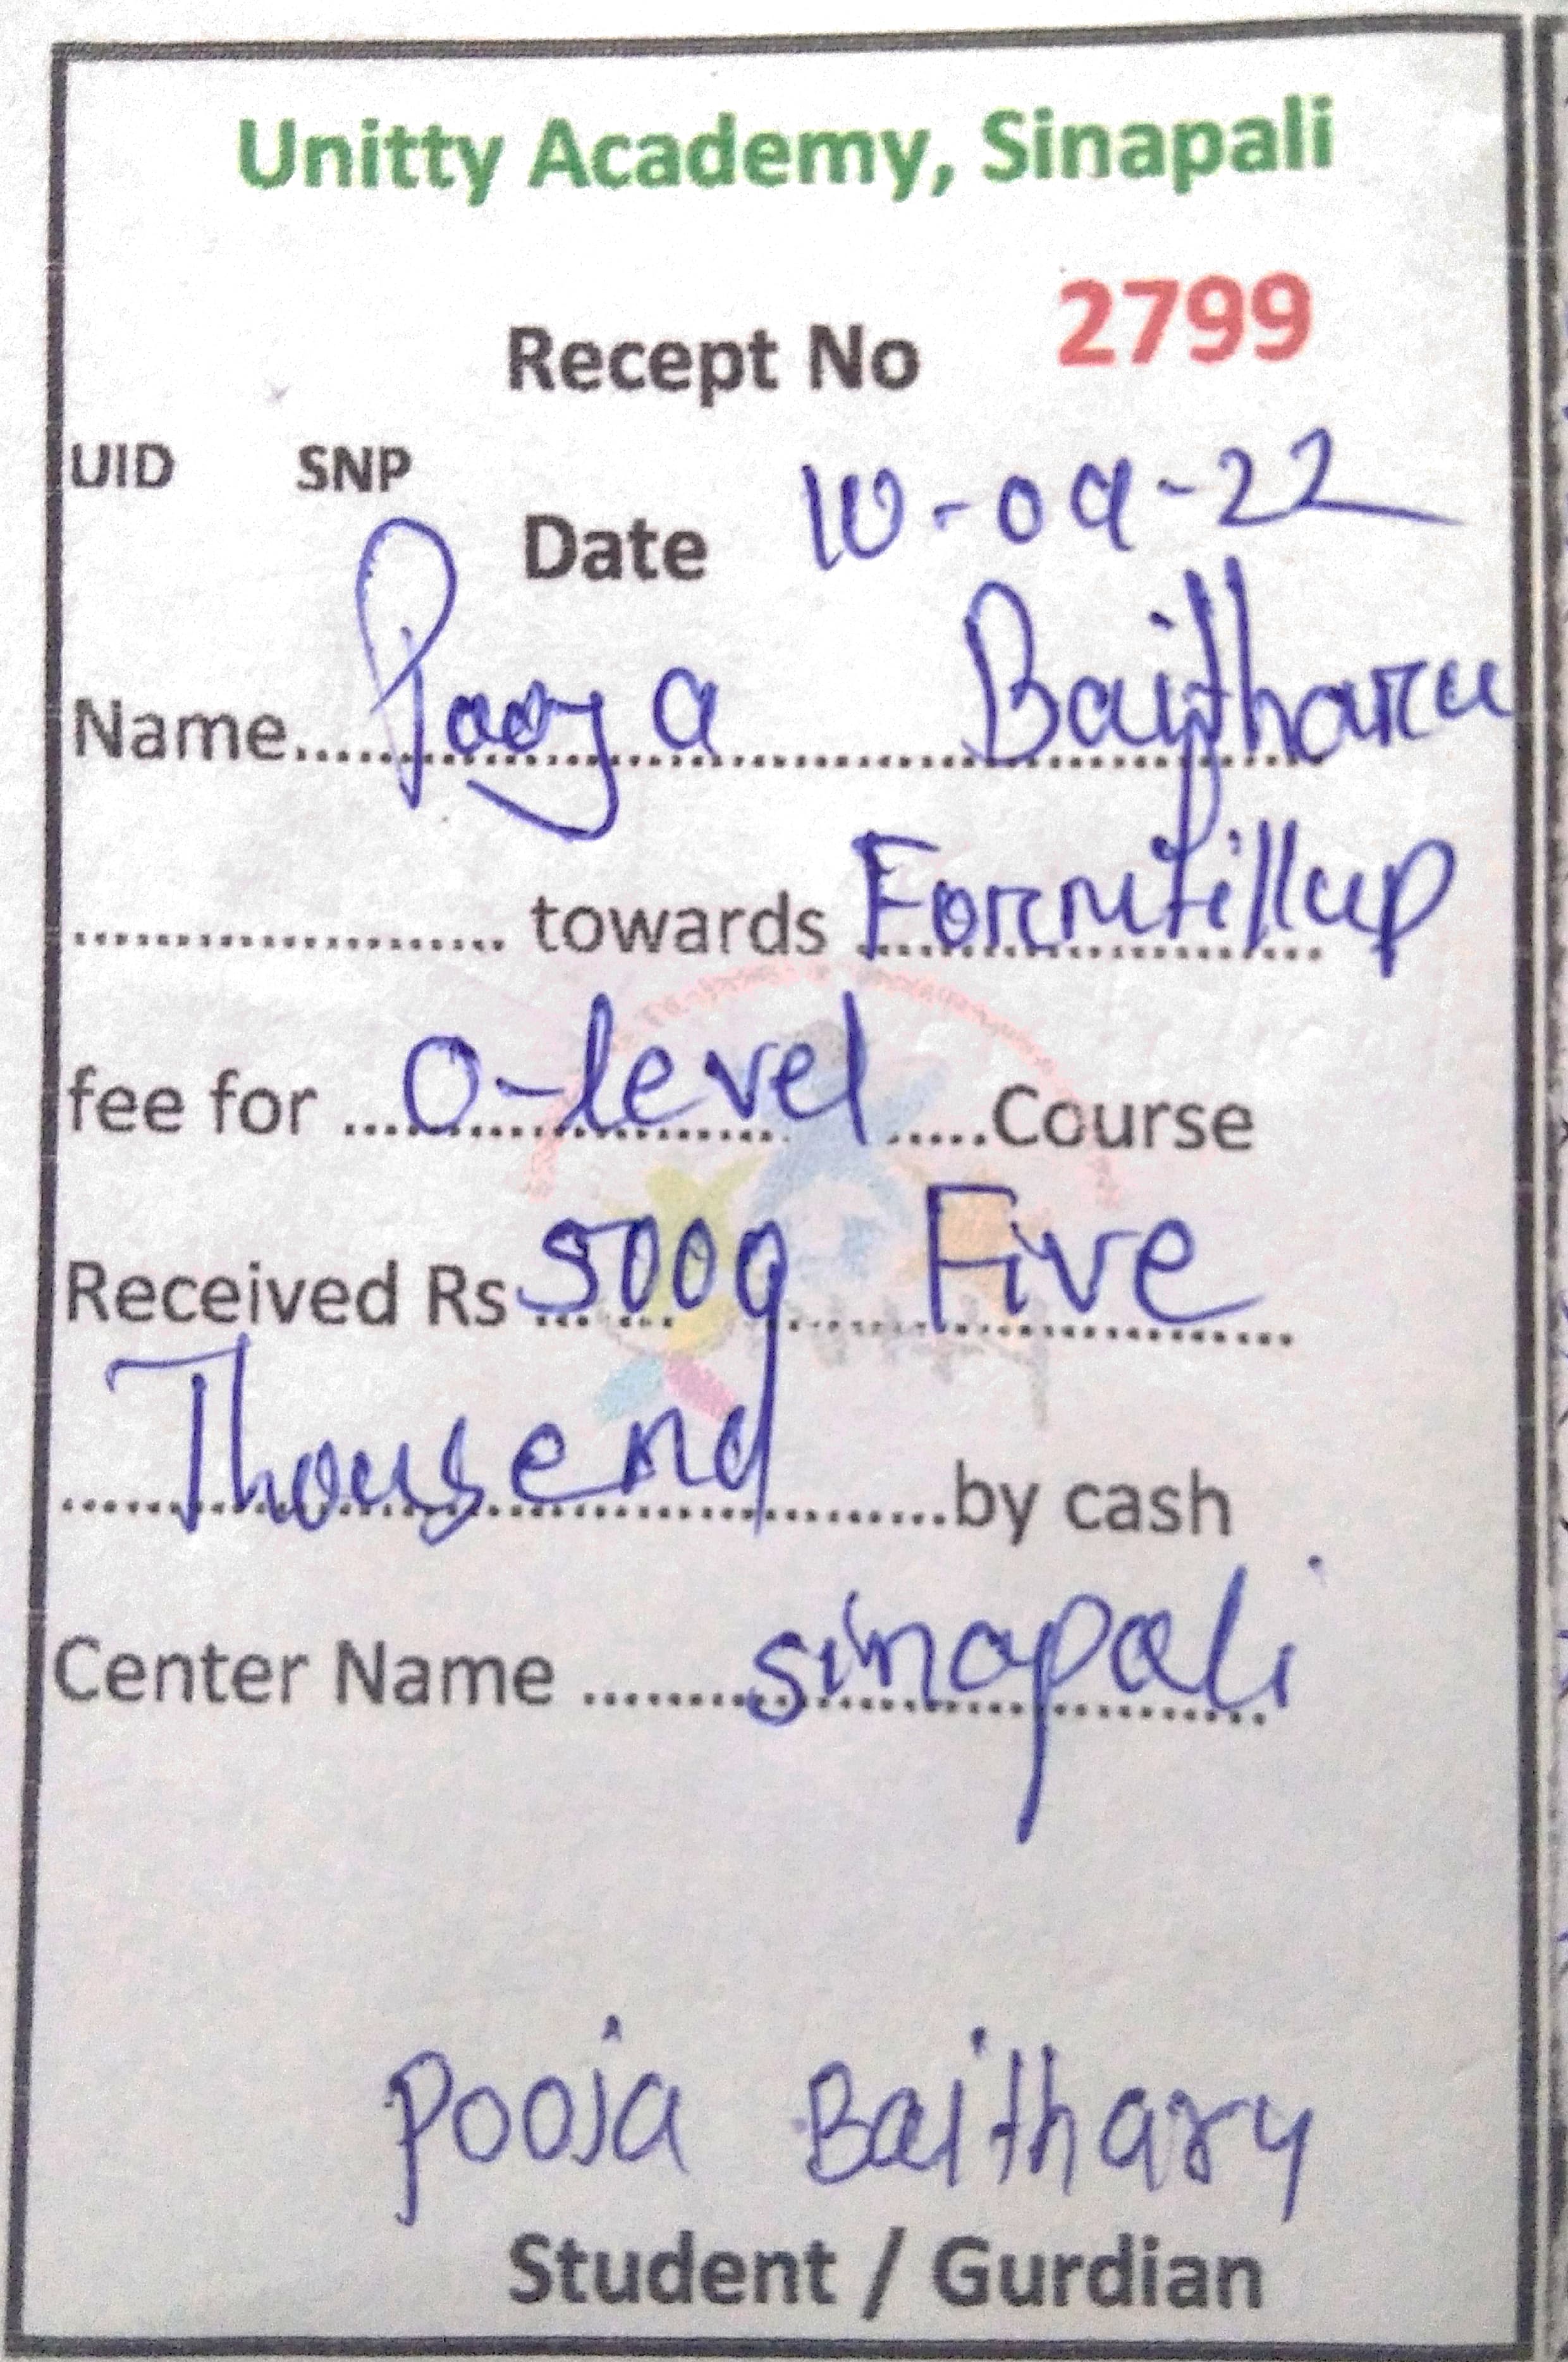 Unitty Academy, Sinapali
Recept No 2799
UID SNP
Date 10-09-22
Name Pooja Baitharu
towards Formfillup
fee for O-level Course
Received Rs 5000 Five
Thousend by cash
Center Name sinapali
Pooja Baitharu
Student / Gurdian